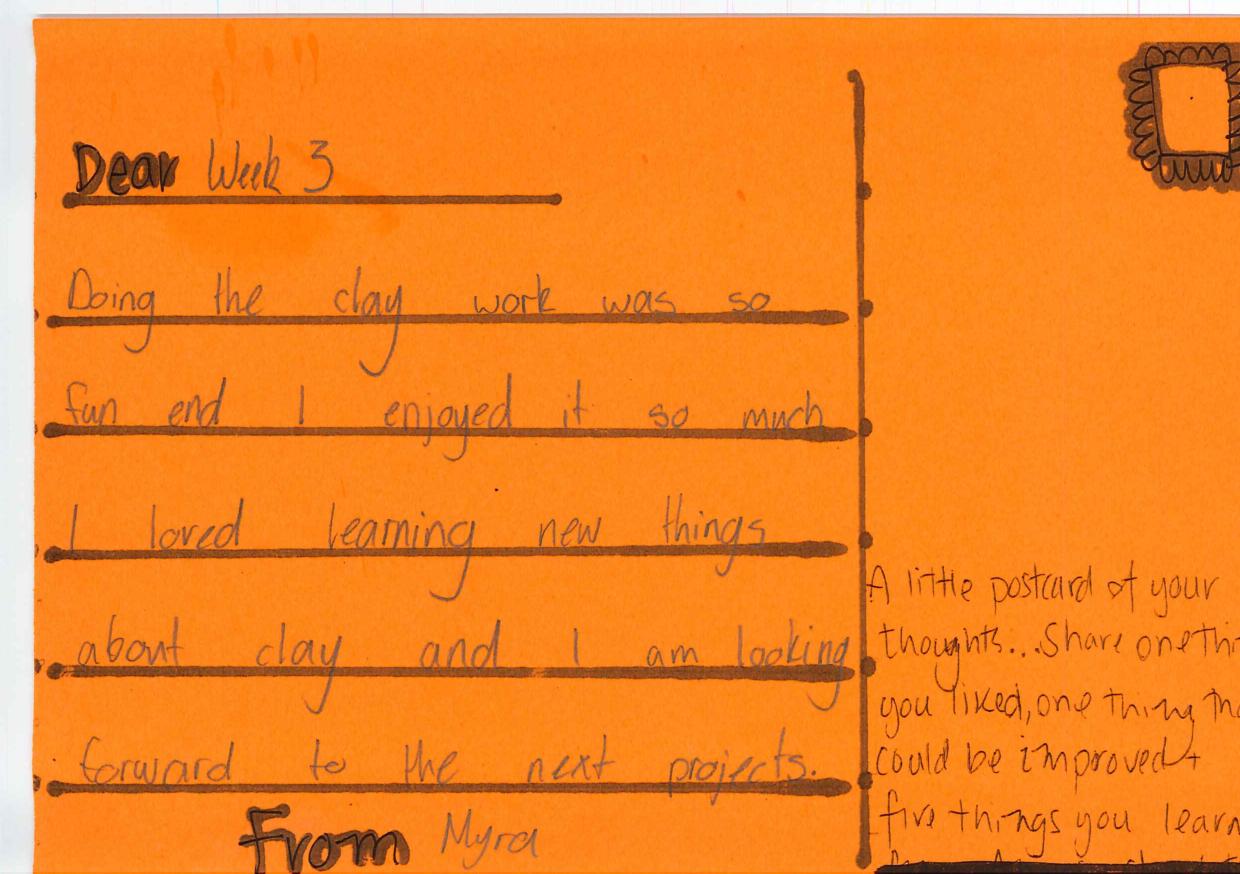 Dear Week 3
Doing the clay work was so
fun end I enjoyed it so much
I loved learning new things
about clay and I am looking
forward to the next projects.
From Myra
A little postcard of your
thoughts... Share one thi
you liked, one thing tha
could be improved +
five things you learn